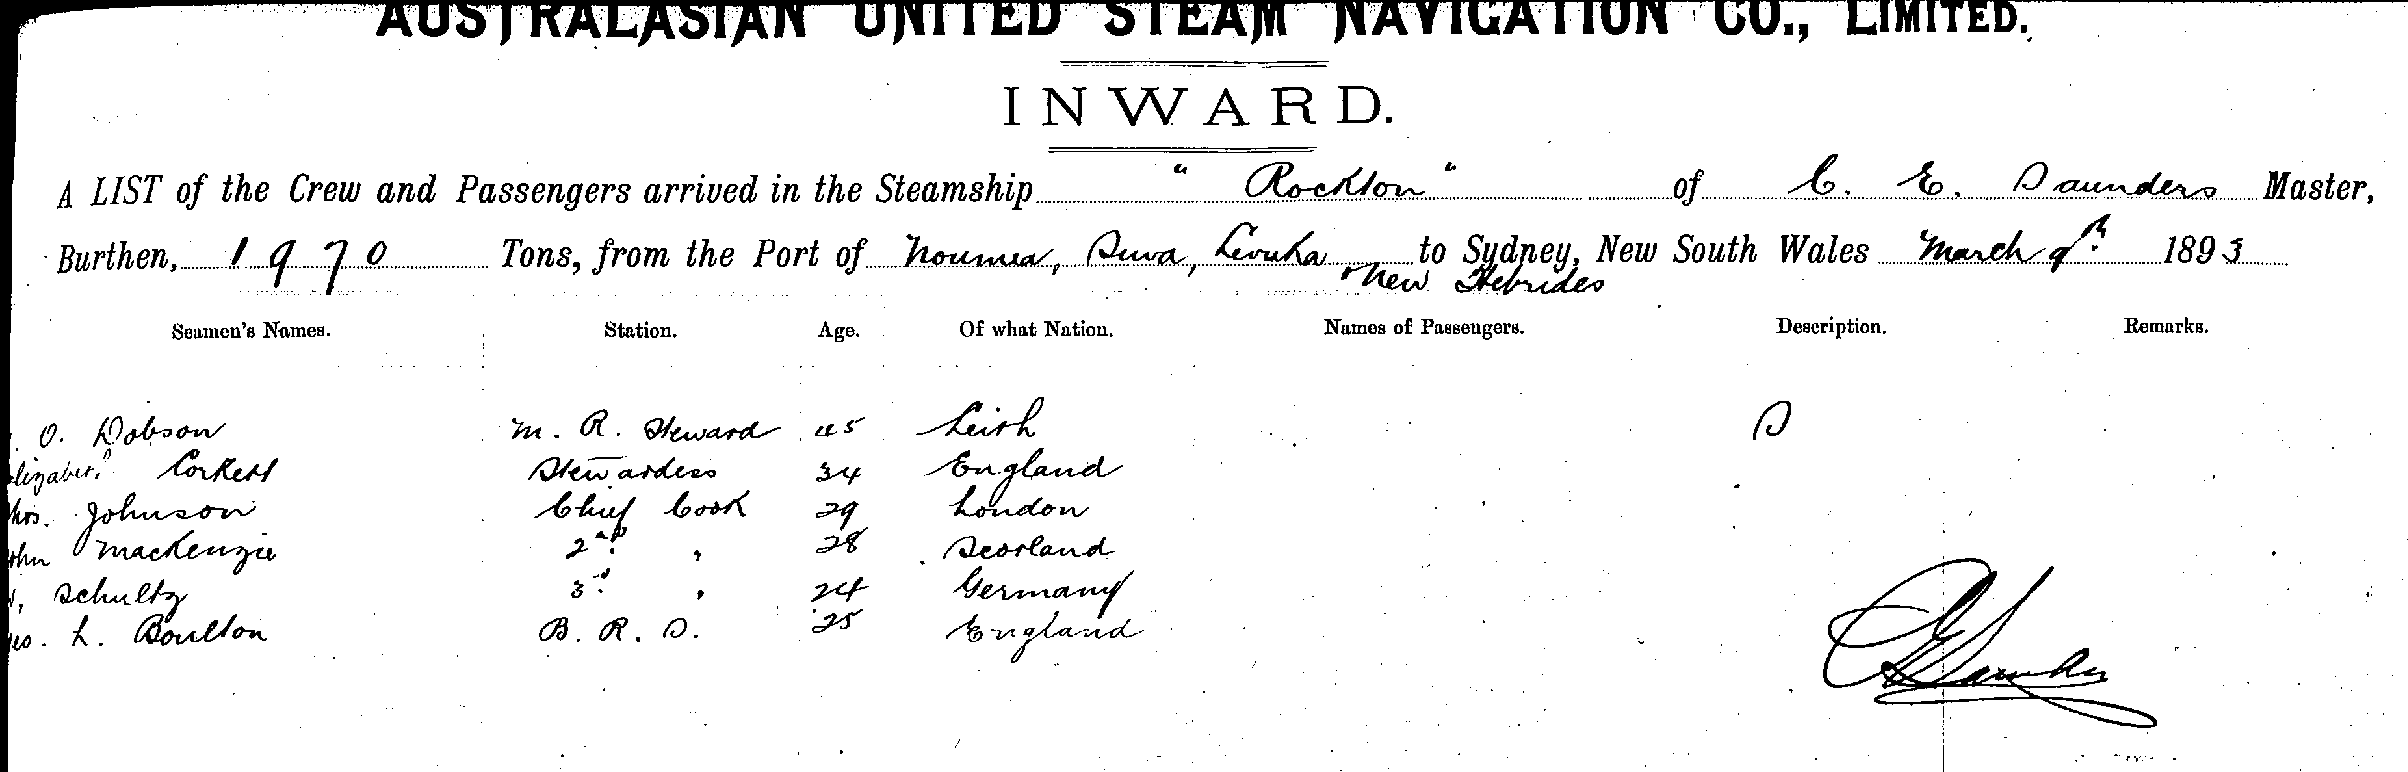 AUSTRALASIAN UNITED STEAM NAVIGATION CO., LIMITED.
INWARD.
A LIST of the Crew and Passengers arrived in the Steamship "Rockton" of C. E. Saunders Master,
Burthen, 1970 Tons, from the Port of Noumea, Suva, Levuka to Sydney, New South Wales March 9th 1893
& New Hebrides
Seamen's Names. Station. Age. Of what Nation. Names of Passengers. Description. Remarks.
O. Dobson M. R. Steward 45 Leith
Elizabeth Corkett Stewardess 34 England
hos. Johnson Chief Cook 29 London
ohn MacKenzie 2nd " 28 Scotland
Schultz 3rd " 24 Germany
eo. L. Boulton B. R. S. 25 England